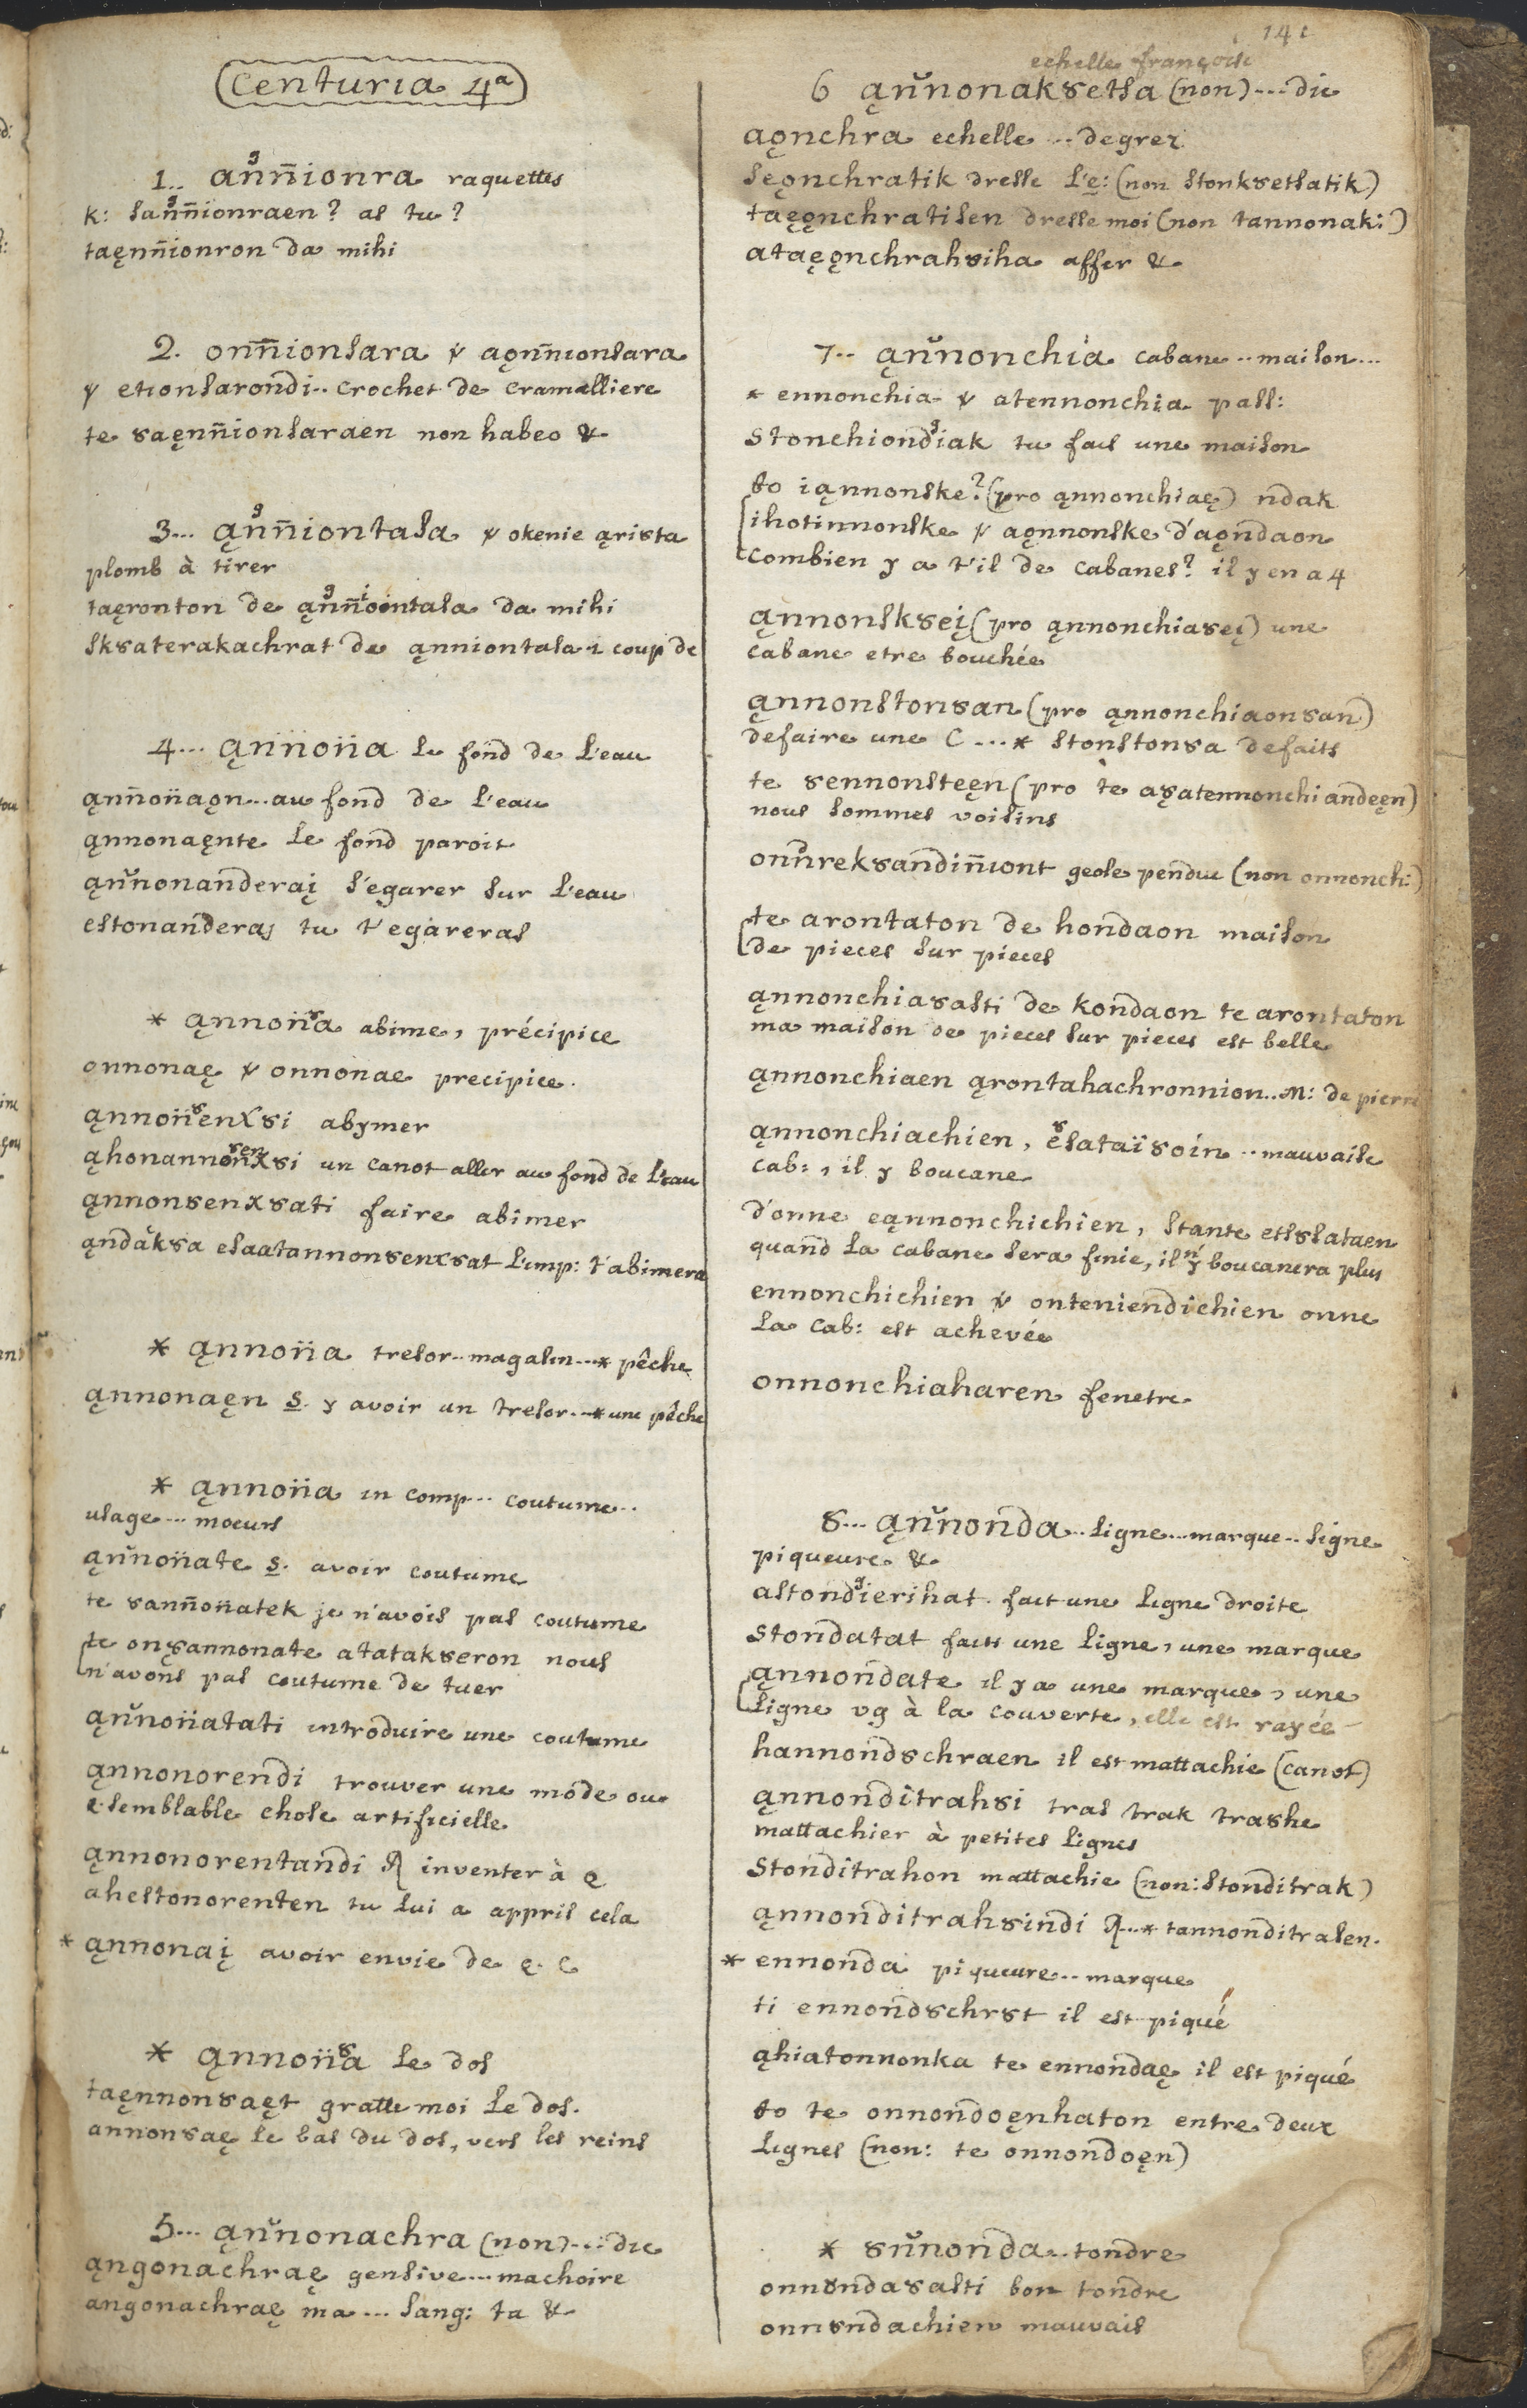 141
Centuria 4ª
1.. ann̄ionra raquettes
K: sann̄ionraen? as tu?
taęnn̄ionron da mihi
2. onn̄ionsara & aǫnn̄ionsara
& etionsarondi.. Crochet de Cramalliere
te 8aęnn̄ionsaraen non habeo &
3... ąnn̄iontasa & okenie ąrista
plomb à tirer
taęronton de ąnn̄iontasa da mihi
sk8aterakachrat de ąnniontasa 1 coup de
4... ąnnon̈a le fond de l'eau
ąnn̄on̈aǫn... au fond de l'eau
ąnnonaęnte le fond paroit
ąnnonanderaį s'egarer sur l'eau
estonanderaį tu t'egareras
* ąnnon̈8a abime, précipice
onnonaę & onnonae precipice.
ąnnon8enx8i abymer
ąhonannon8enx8i un canot aller au fond de l'eau
ąnnon8enx8ati faire abimer
ąndak8a esaatannon8enx8at l'imp: t'abimera
* ąnnon̈a tresor.. magasin...* pêche
ąnnonaęn S. y avoir un tresor...* une pêche
* ąnnon̈a in comp... coutume..
usage... moeurs
ąnnon̈ate S. avoir coutume
te 8ann̄on̈atek je n'avois pas coutume
te on8annonate atatak8eron nous
n'avons pas coutume de tuer
ąnnon̈atati introduire une coutume
ąnnonorendi trouver une mode ou
semblable chose artificielle
ąnnonorentandi R inventer à ę
ahestonorenten tu lui a appris cela
* ąnnonaį avoir envie de ę. C
* ąnnon̈8a le dos
taęnnon8aęt gratte moi le dos.
annon8aę le bas du dos, vers les reins
5... ąnnonachra (non)... dic
ąngonachraę gensive... machoire
angonachraę ma... sang: ta &
echelle françoise
6 ąnnonak8etsa (non)... dic
aǫnchra echelle... degrez
seǫnchratik dresse l'ę: (non stonk8etsatik)
taęǫnchratisen dresse moi (non tannonak:)
ataęǫnchrah8iha affer &
7.. ąnnonchia cabane.. maison...
* ennonchia & atennonchia pass:
Stonchiondiak tu fais une maison
to iąnnonske? (pro ąnnonchiaę) ndak
ihotinnonske & aǫnnonske d'aǫndaon
Combien y a t'il de cabanes? il y en a 4
ąnnonsk8eį (pro ąnnonchia8eį) une
cabane etre bouchée
ąnnonston8an (pro ąnnonchiaon8an)
defaire une C...* stonston8a defaits
te 8ennonsteęn (pro te a8atennonchiandeęn)
nous sommes voisins
onnrek8andin̄iont geole pendue (non onnonch:)
te arontaton de hondaon maison
de pieces sur pieces
ąnnonchia8asti de kondaon te arontaton
ma maison de pieces sur pieces est belle
ąnnonchiaen ąrontahachronnion.. M: de pierre
ąnnonchiachien, esataï8oin.. mauvaise
Cab:, il y boucane
d'onne eąnnonchichien, stante ets8ataen
quand la cabane sera finie, il n'y boucanera plus
ennonchichien & onteniendichien onne
la Cab: est achevée
onnonchiaharen fenetre
8... ąnnonda.. ligne... marque.. signe
piqueure &
astondierihat. fait une ligne droite
Stondatat faits une ligne, une marque
ąnnondate il y a une marque, une
ligne vg à la couverte, elle est rayée
hannond8chraen il est mattachie (canot)
ąnnonditrah8i tras trak trashe
mattachier à petites lignes
Stonditrahon mattachie (non: stonditrak)
ąnnonditrah8indi R...* tannonditrasen.
* ennonda piqueure.. marque
ti ennond8chr8t il est piqué
ąhiatonnonka te ennondaę il est piqué
to te onnondoęnhaton entre deux
lignes (non: te onnondoęn)
* 8nnonda.. tondre
onn8nda8asti bon tondre
onn8ndachien mauvais